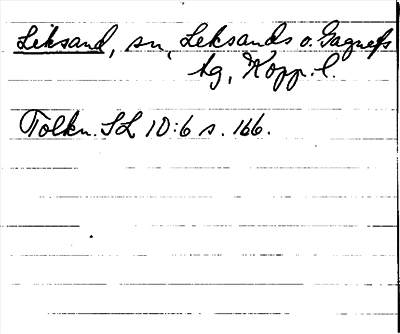 Leksand, sn, Leksands o. Gagnefs
tg, Kopp. l.
Tolkn. SL 10:6 s. 166.